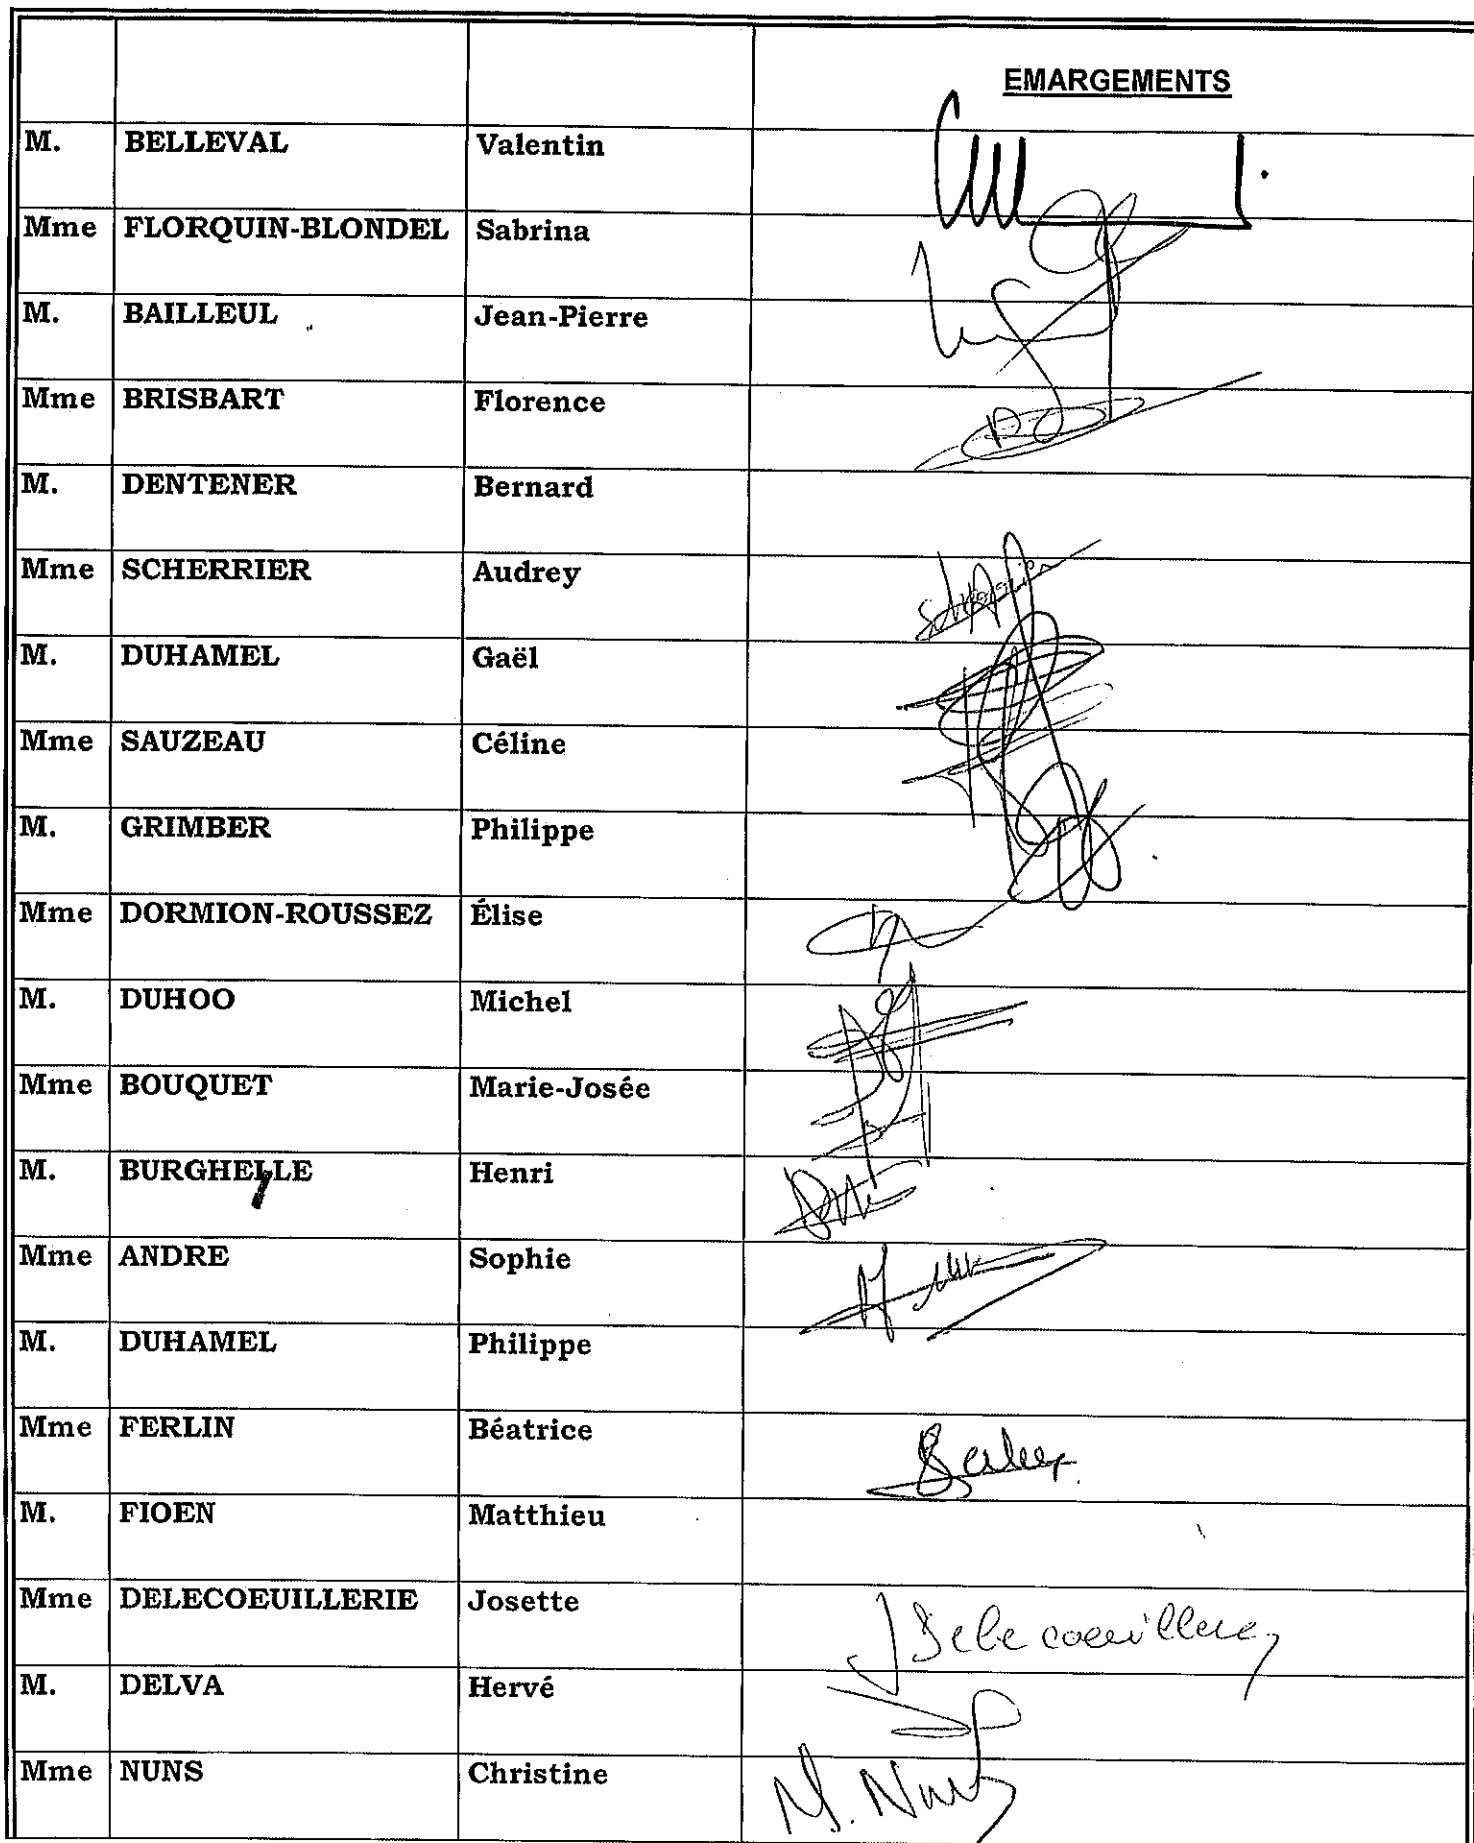 EMARGEMENTS
M. BELLEVAL Valentin
Mme FLORQUIN-BLONDEL Sabrina
M. BAILLEUL Jean-Pierre
Mme BRISBART Florence
M. DENTENER Bernard
Mme SCHERRIER Audrey
M. DUHAMEL Gaël
Mme SAUZEAU Céline
M. GRIMBER Philippe
Mme DORMION-ROUSSEZ Élise
M. DUHOO Michel
Mme BOUQUET Marie-Josée
M. BURGHELLE Henri
Mme ANDRE Sophie
M. DUHAMEL Philippe
Mme FERLIN Béatrice
M. FIOEN Matthieu
Mme DELECOEUILLERIE Josette
M. DELVA Hervé
Mme NUNS Christine